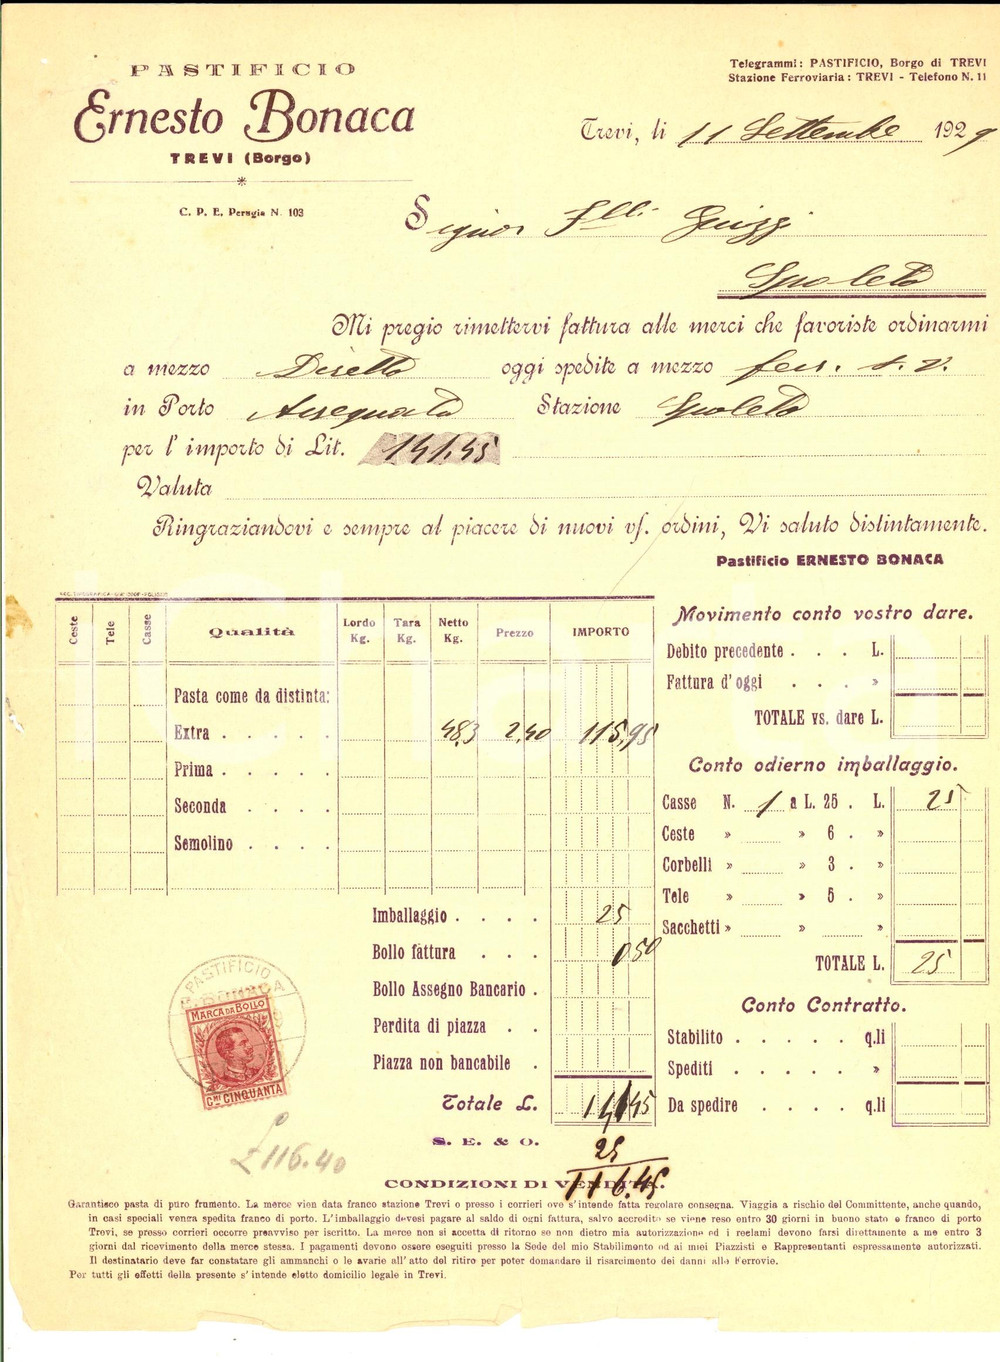 PASTIFICIO
Ernesto Bonaca
TREVI (Borgo)
C. P. E. Perugia N. 103
Telegrammi: PASTIFICIO, Borgo di TREVI
Stazione Ferroviaria: TREVI - Telefono N. 11
Trevi, li 11 Settembre 1929
Signor F.lli
Spoleto
Mi pregio rimettervi fattura alle merci che favoriste ordinarmi
a mezzo Diretto oggi spedite a mezzo ferr.
in Porto Assegnato Stazione Spoleto
per l' importo di Lit. 141.45
Valuta
Ringraziandovi e sempre al piacere di nuovi vs. ordini, Vi saluto distintamente.
Pastificio ERNESTO BONACA
Ceste Tele Casse Qualità Lordo Kg. Tara Kg. Netto Kg. Prezzo IMPORTO
Pasta come da distinta:
Extra . . . . . 48,3 2,40 115,95
Prima . . . . .
Seconda . . . .
Semolino . . . .
Imballaggio . . . . 25
Bollo fattura . . . 0.50
Bollo Assegno Bancario .
Perdita di piazza . .
Piazza non bancabile .
Totale L. 141,45
S. E. & O. 25
116.45
Movimento conto vostro dare.
Debito precedente . . . L.
Fattura d' oggi . . . »
TOTALE vs. dare L.
Conto odierno imballaggio.
Casse N. 1 a L. 25 . L. 25
Ceste » » 6 . »
Corbelli » » 3 . »
Tele » » 5 . »
Sacchetti » » »
TOTALE L. 25
Conto Contratto.
Stabilito . . . . . q.li
Spediti . . . . . »
Da spedire . . . . q.li
PASTIFICIO
E. BONACA
MARCA DA BOLLO
CMI CINQUANTA
£ 116.40
CONDIZIONI DI VENDITA.
Garantisco pasta di puro frumento. La merce vien data franco stazione Trevi o presso i corrieri ove s'intende fatta regolare consegna. Viaggia a rischio del Committente, anche quando,
in casi speciali venga spedita franco di porto. L'imballaggio devesi pagare al saldo di ogni fattura, salvo accredito se viene reso entro 30 giorni in buono stato e franco di porto
Trevi, se presso corrieri occorre preavviso per iscritto. La merce non si accetta di ritorno se non dietro mia autorizzazione ed i reclami devono farsi direttamente a me entro 3
giorni dal ricevimento della merce stessa. I pagamenti devono essere eseguiti presso la Sede del mio Stabilimento od ai miei Piazzisti e Rappresentanti espressamente autorizzati.
Il destinatario deve far constatare gli ammanchi o le avarie all'atto del ritiro per poter domandare il risarcimento dei danni alle Ferrovie.
Per tutti gli effetti della presente s'intende eletto domicilio legale in Trevi.